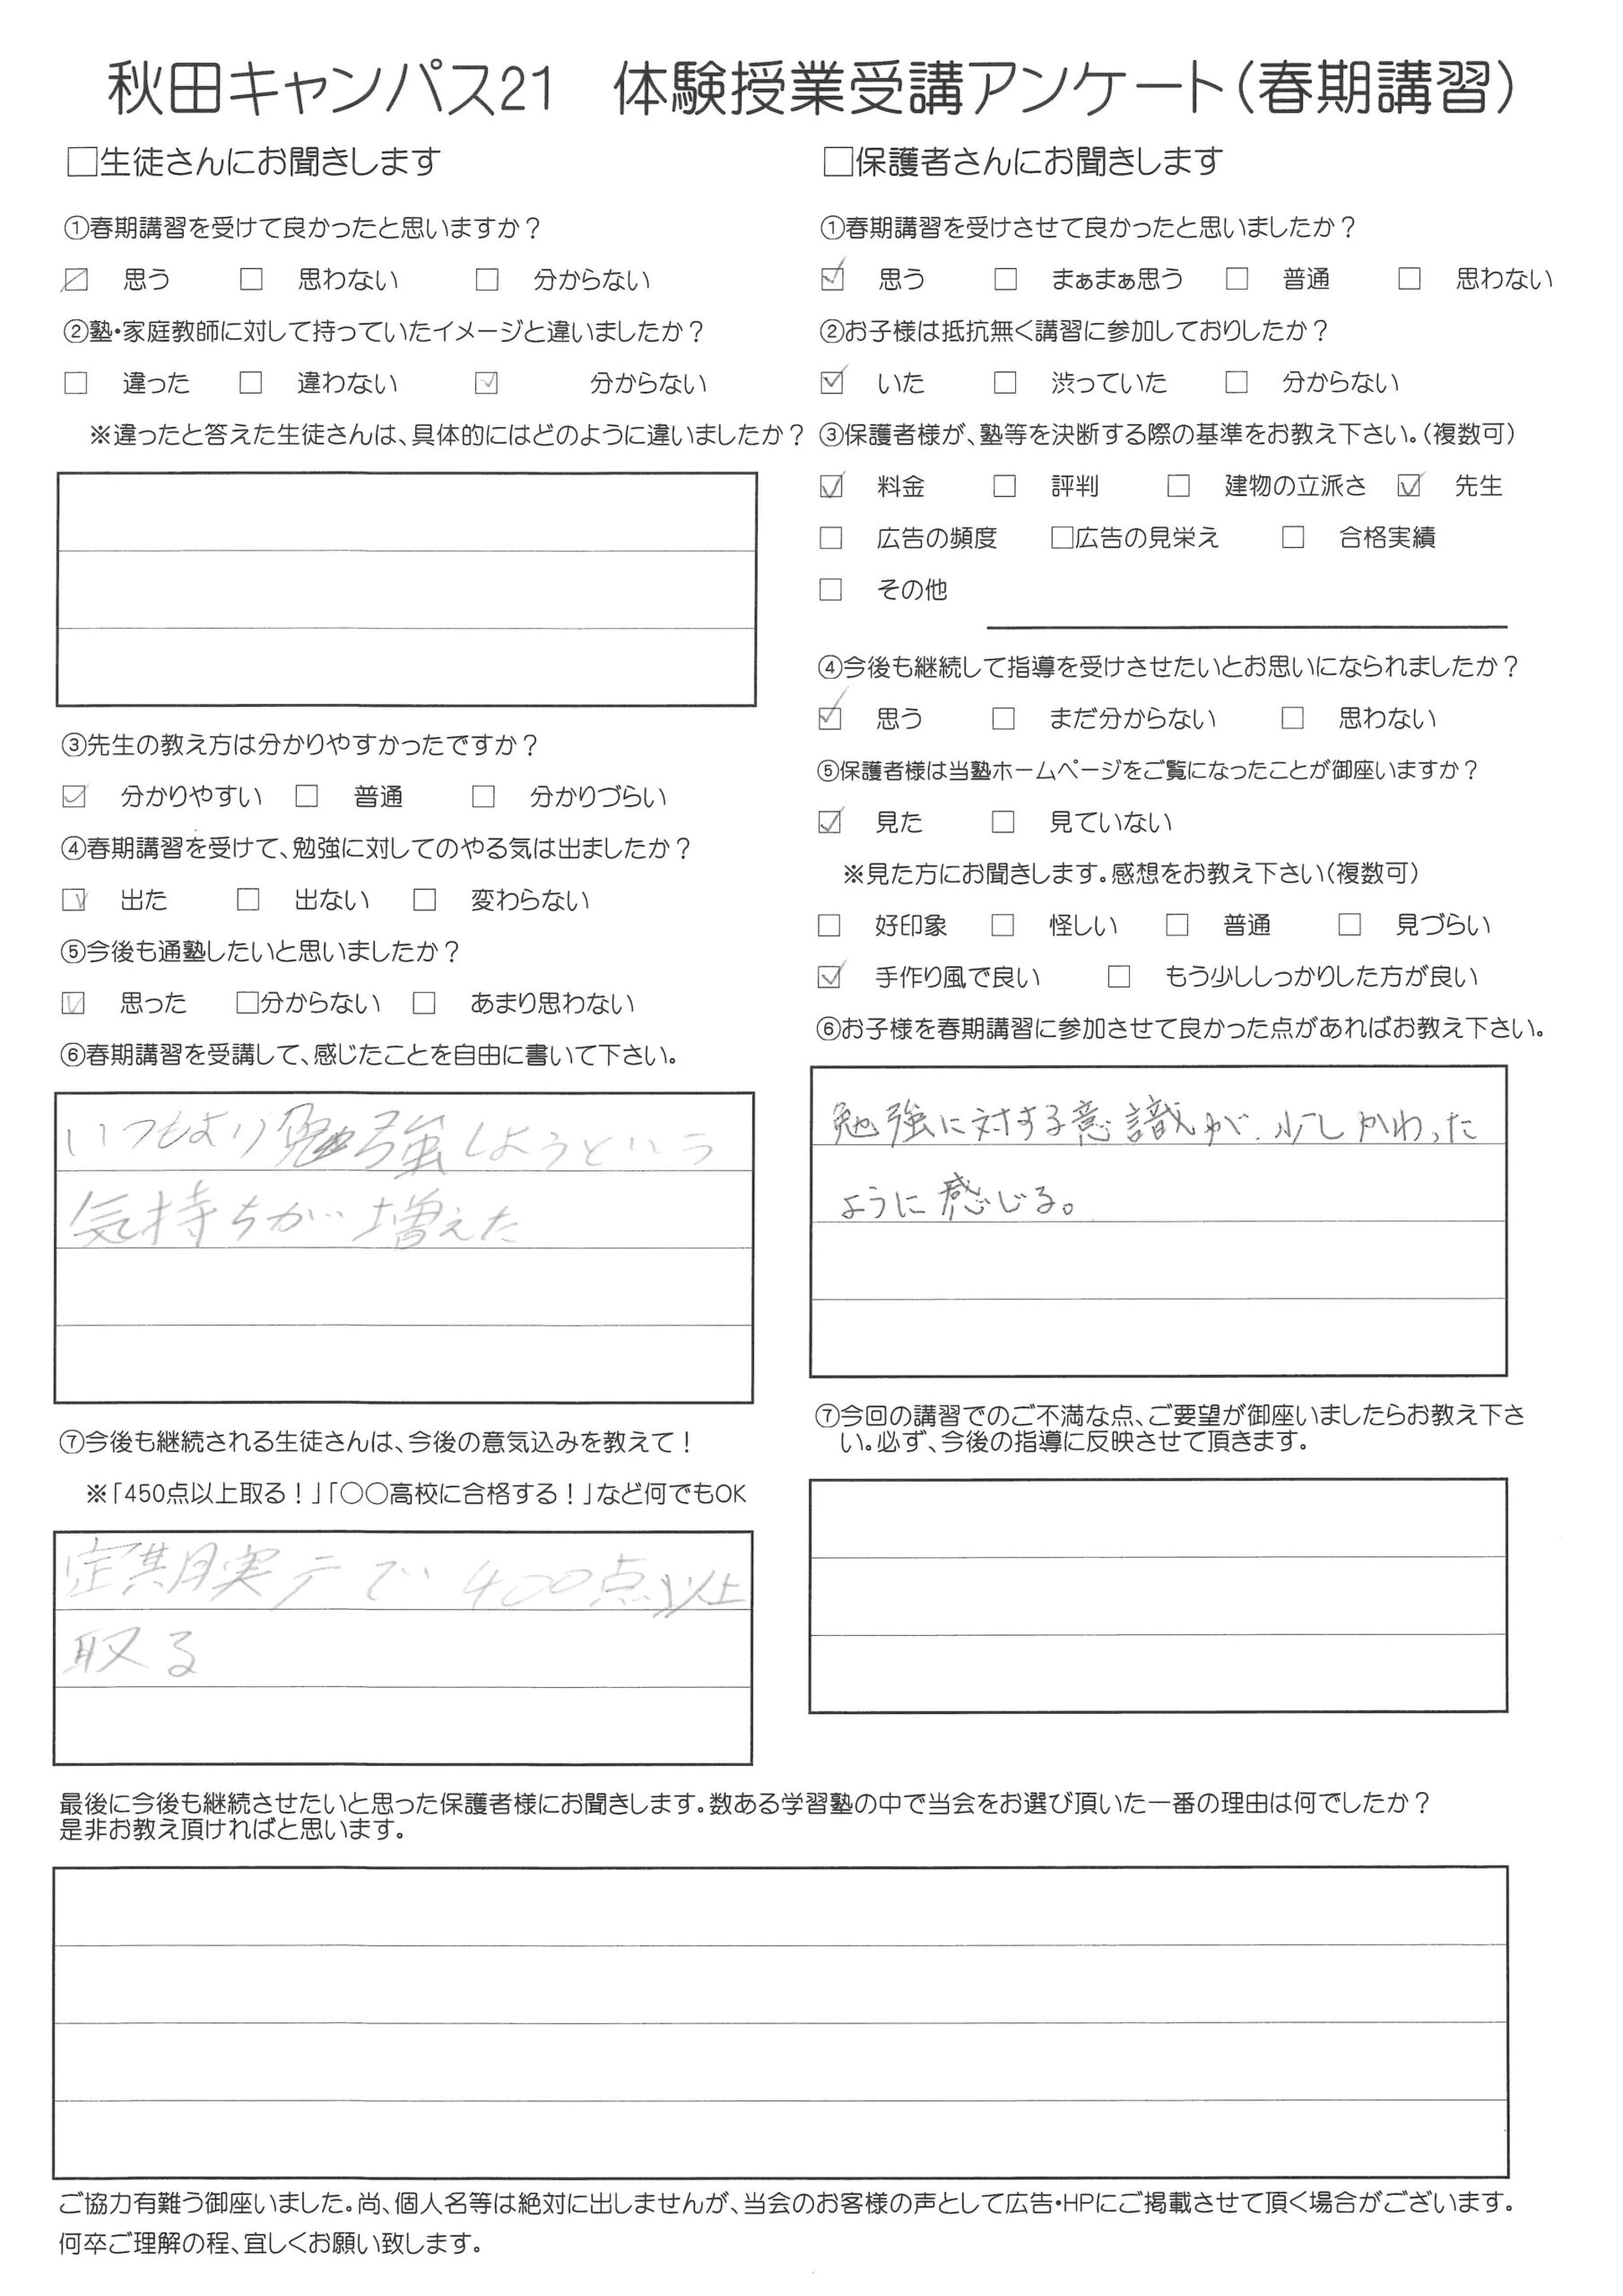 秋田キャンパス21　体験授業受講アンケート(春期講習)
□生徒さんにお聞きします
①春期講習を受けて良かったと思いますか？
☑ 思う □ 思わない □ 分からない
②塾・家庭教師に対して持っていたイメージと違いましたか？
□ 違った □ 違わない ☑ 分からない
※違ったと答えた生徒さんは、具体的にはどのように違いましたか？
③先生の教え方は分かりやすかったですか？
☑ 分かりやすい □ 普通 □ 分かりづらい
④春期講習を受けて、勉強に対してのやる気は出ましたか？
☑ 出た □ 出ない □ 変わらない
⑤今後も通塾したいと思いましたか？
☑ 思った □分からない □ あまり思わない
⑥春期講習を受講して、感じたことを自由に書いて下さい。
いつもより勉強しようという
気持ちが増えた
⑦今後も継続される生徒さんは、今後の意気込みを教えて！
※「450点以上取る！」「○○高校に合格する！」など何でもOK
定期実テで400点以上
取る
□保護者さんにお聞きします
①春期講習を受けさせて良かったと思いましたか？
☑ 思う □ まぁまぁ思う □ 普通 □ 思わない
②お子様は抵抗無く講習に参加しておりしたか？
☑ いた □ 渋っていた □ 分からない
③保護者様が、塾等を決断する際の基準をお教え下さい。(複数可)
☑ 料金 □ 評判 □ 建物の立派さ ☑ 先生
□ 広告の頻度 □広告の見栄え □ 合格実績
□ その他
④今後も継続して指導を受けさせたいとお思いになられましたか？
☑ 思う □ まだ分からない □ 思わない
⑤保護者様は当塾ホームページをご覧になったことが御座いますか？
☑ 見た □ 見ていない
※見た方にお聞きします。感想をお教え下さい(複数可)
□ 好印象 □ 怪しい □ 普通 □ 見づらい
☑ 手作り風で良い □ もう少ししっかりした方が良い
⑥お子様を春期講習に参加させて良かった点があればお教え下さい。
勉強に対する意識が、少しかわった
ように感じる。
⑦今回の講習でのご不満な点、ご要望が御座いましたらお教え下さ
い。必ず、今後の指導に反映させて頂きます。
最後に今後も継続させたいと思った保護者様にお聞きします。数ある学習塾の中で当会をお選び頂いた一番の理由は何でしたか？
是非お教え頂ければと思います。
ご協力有難う御座いました。尚、個人名等は絶対に出しませんが、当会のお客様の声として広告・HPにご掲載させて頂く場合がございます。
何卒ご理解の程、宜しくお願い致します。